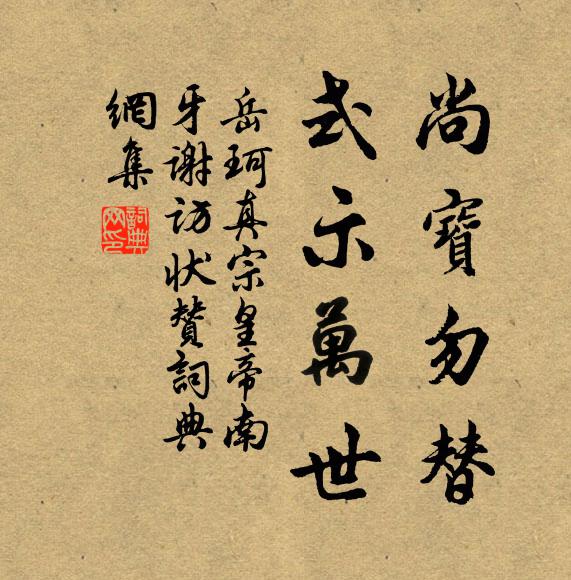 尚寶勿替
式示萬世
岳珂真宗皇帝南
牙謝訪狀贊詞典
網集
詞典
网印